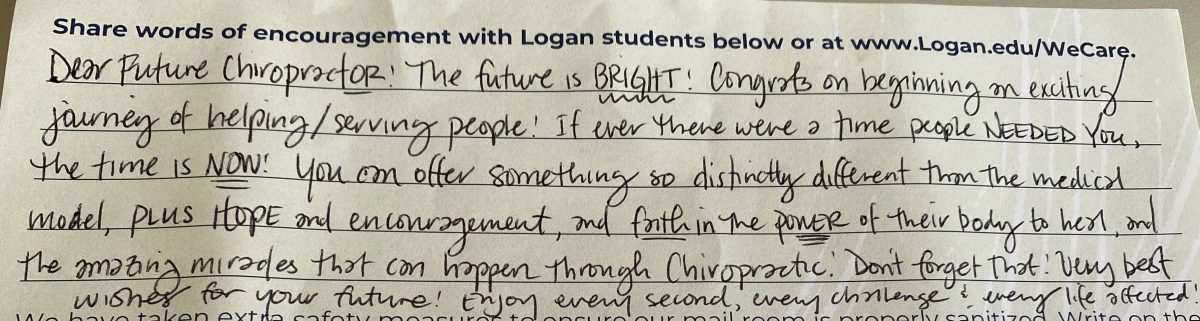 Share words of encouragement with Logan students below or at www.Logan.edu/WeCare.
Dear Future ChiropractOR! The future is BRIGHT! Congrats on beginning an exciting
journey of helping/serving people! If ever there were a time people NEEDED You,
the time is NOW! You can offer something so distinctly different than the medical
model, PLUS HOPE and encouragement, and faith in the POWER of their body to heal, and
the amazing miracles that can happen through Chiropractic! Don't forget that! Very best
wishes for your future! Enjoy every second, every challenge & every life affected!
We have taken extra safety measures to ensure our mail room is properly sanitized. Write on the